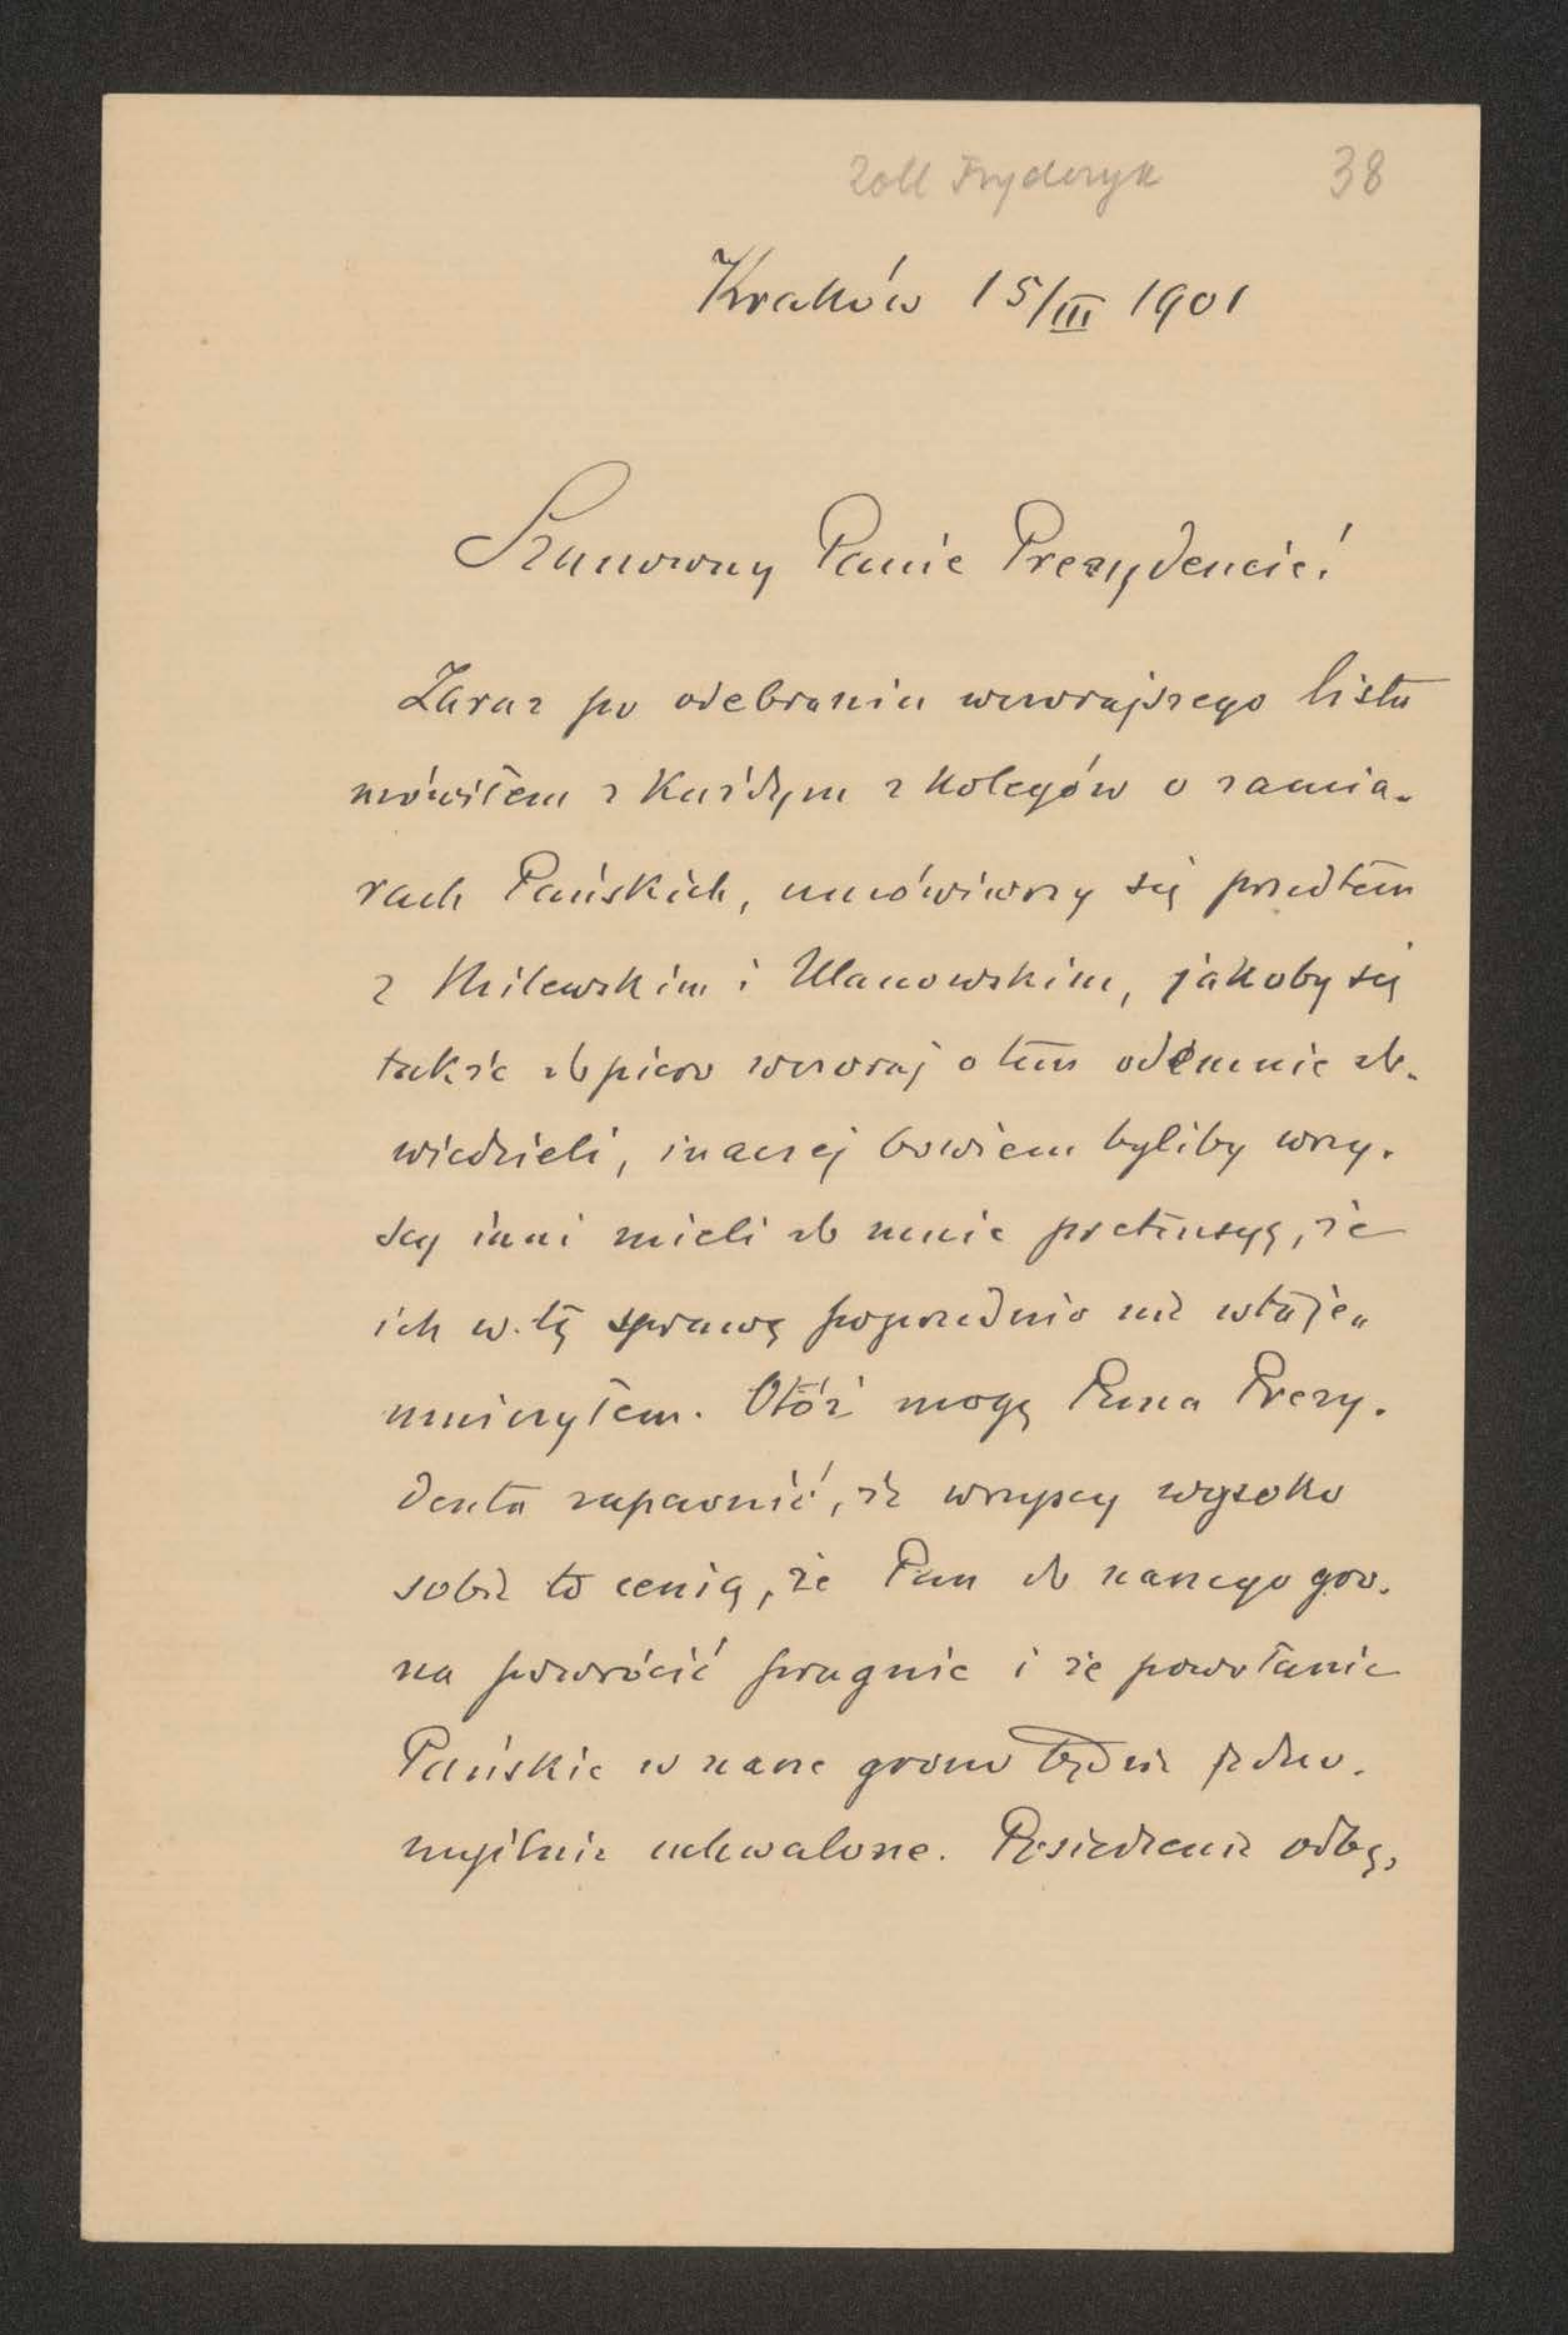 Zoll Fryderyk 38
Kraków 15/III 1901
Szanowny Panie Prezydencie!
Zaraz po odebraniu wczorajszego listu
mówiłem z każdym z kolegów o zamia-
rach Pańskich, umówiwszy się przedtem
z Milewskim i Ulanowskim, jakoby się
także dopiero wczoraj o tem odemnie do-
wiedzieli, inaczej bowiem byliby wszy-
scy inni mieli do mnie pretensyę, że
ich w tę sprawę poprzednio nie wtaje-
mniczyłem. Otóż mogę Pana Prezy-
denta zapewnić, że wszyscy wysoko
sobie to cenią, że Pan do naszego gro-
na powrócić pragnie i że powołanie
Pańskie w nasze grono będzie jedno-
myślnie uchwalone. Posiedzenie odbę-